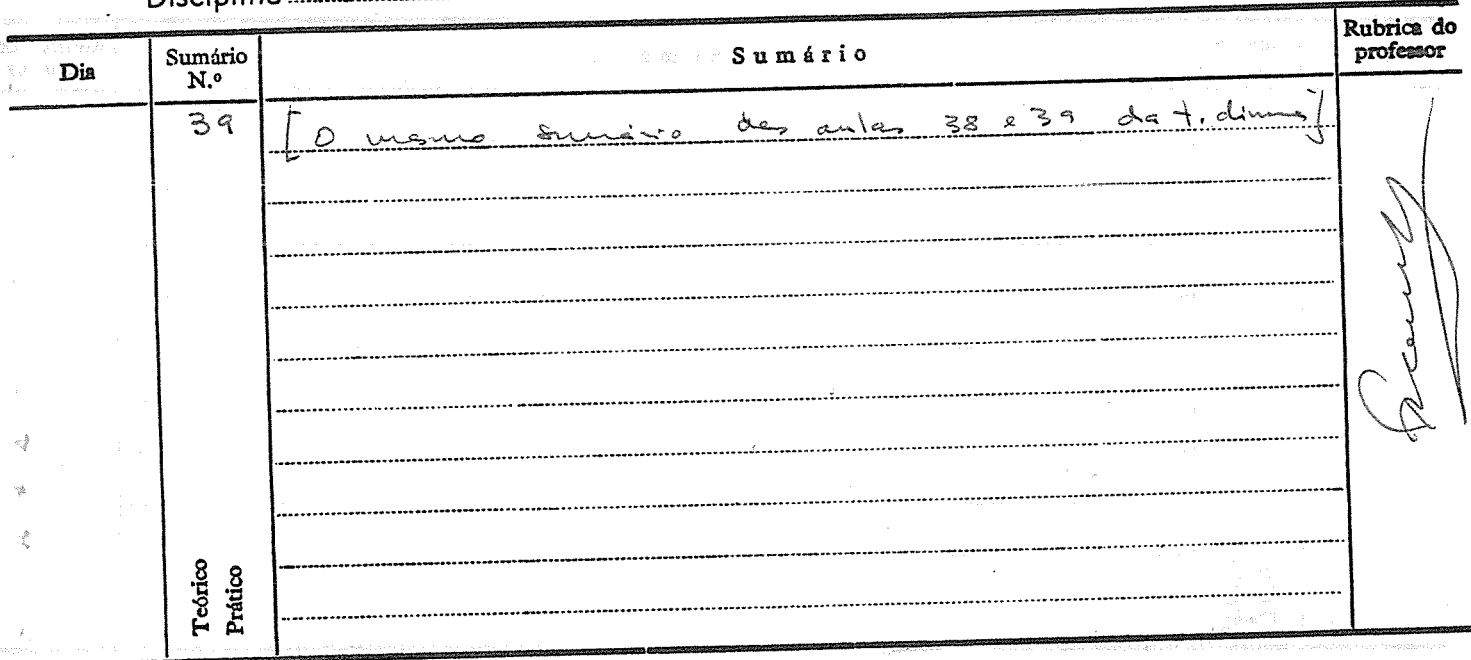 Disciplina
Dia
Sumário N.º
Sumário
Rubrica do professor
39
[O mesmo sumário das aulas 38 e 39 da t. diurna]
Teórico
Prático